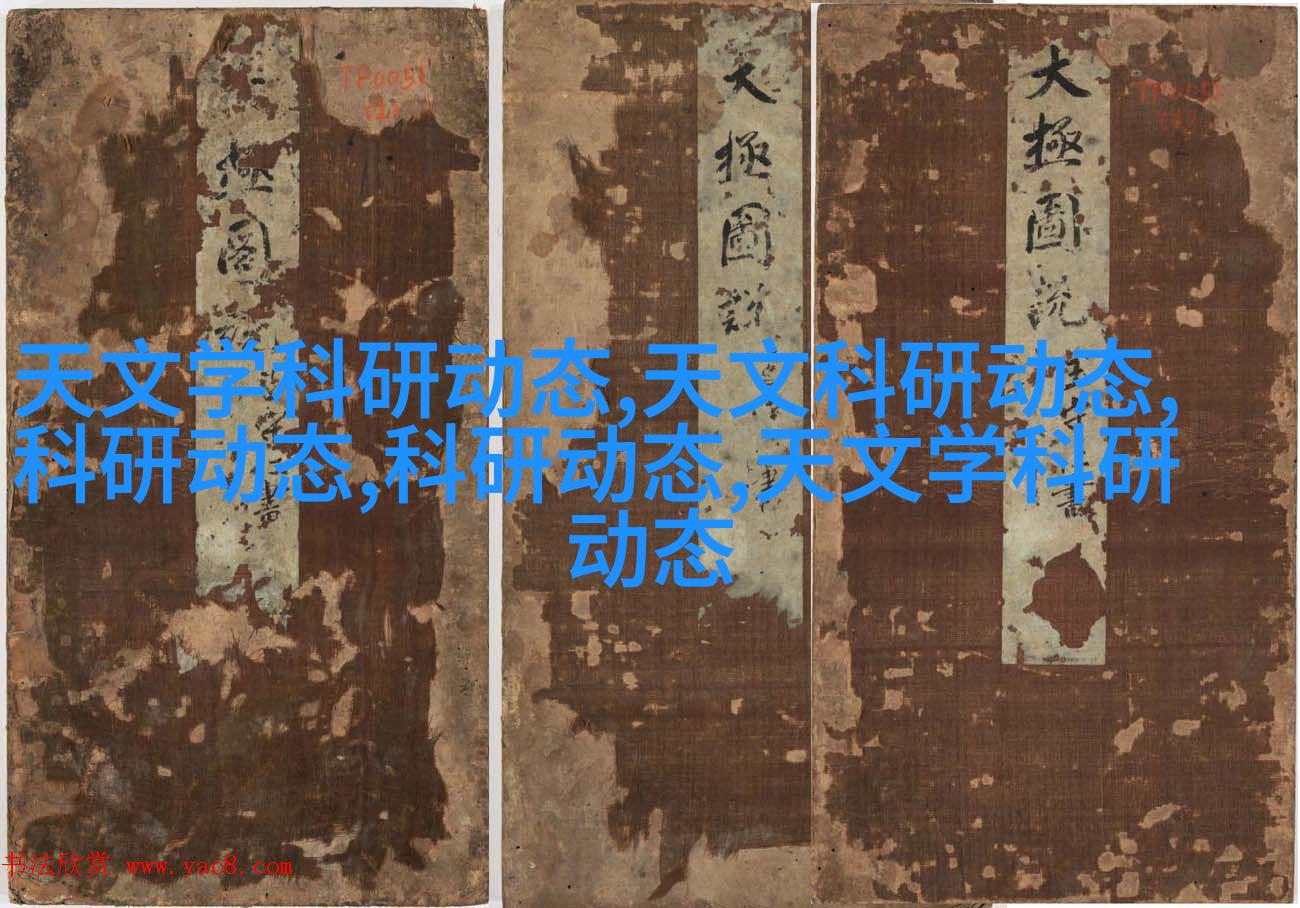 TP0051
(1)
極圖
大極圖說
書
大極圖说
書
天文学科研动态,天文科研动态,
科研动态,科研动态,天文学科研
动态
书法欣赏 www.yac8.com